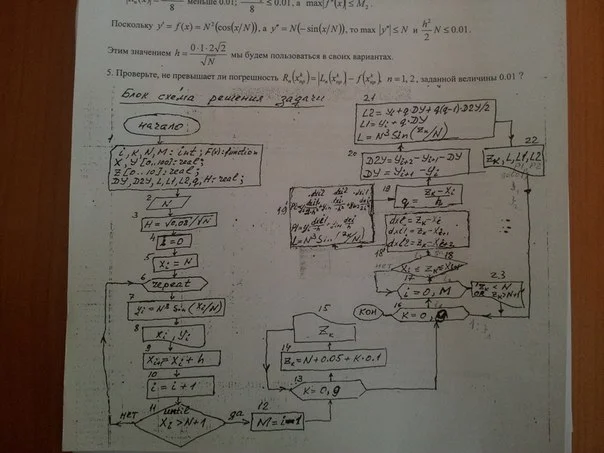 меньше 0.01; а max|f''(x)| ≤ M₂.
Поскольку y' = f(x) = N²(cos(x/N)), а y'' = N(−sin(x/N)), то max |y''| ≤ N и h²/2 N ≤ 0.01.
Этим значением h = 0·1·2√2/√N мы будем пользоваться в своих вариантах.
5. Проверьте, не превышает ли погрешность n = 1, 2, заданной величины 0.01 ?
Блок схема решения задачи
начало
1
i, K, N, M: int; F(x): function
X, Y [0..100]: real;
Z [0..10]: real;
DY, D2Y, L, L1, L2, q, H: real;
2
N
3
H = √0,08/√N
4
i = 0
5
Xi = N
6
repeat
7
Yi = N³ Sin(Xi/N)
8
Xi, Yi
9
Xi+1 = Xi + h
10
i = i + 1
11
until
Xi > N+1
нет
да
12
M = i-1
13
K = 0, 9
14
Zk = N + 0.05 + K·0.1
15
Zk
16
K = 0, 9
кон
17
i = 0, M
18
Xi ≤ Zk ≤ Xi+2
нет
dxi1 = Zk - Xi
dxi1 = Zk - Xi+1
dxi2 = Zk - Xi+2
18
q = Zk - Xi / h
19
L = N³ Sin(Zk/N)
20
D2Y = Yi+2 - Yi+1 - DY
DY = Yi+1 - Yi
21
L2 = Yi + q·DY + q(q-1)·D2Y/2
L1 = Yi + q·DY
L = N³ Sin(Zk/N)
22
Zk, L, L1, L2
23
Zk < N
OR Zk > N+1